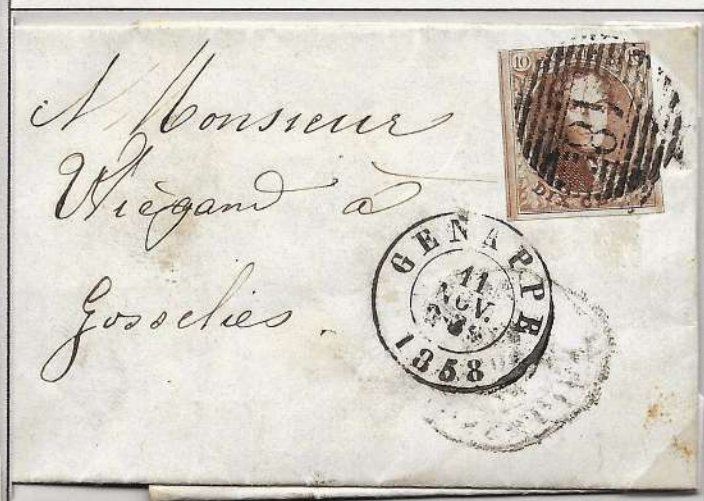 A Monsieur
Wiégand à
Gosselies.
10
81
DIX
GENAPPE
11
NOV.
1858